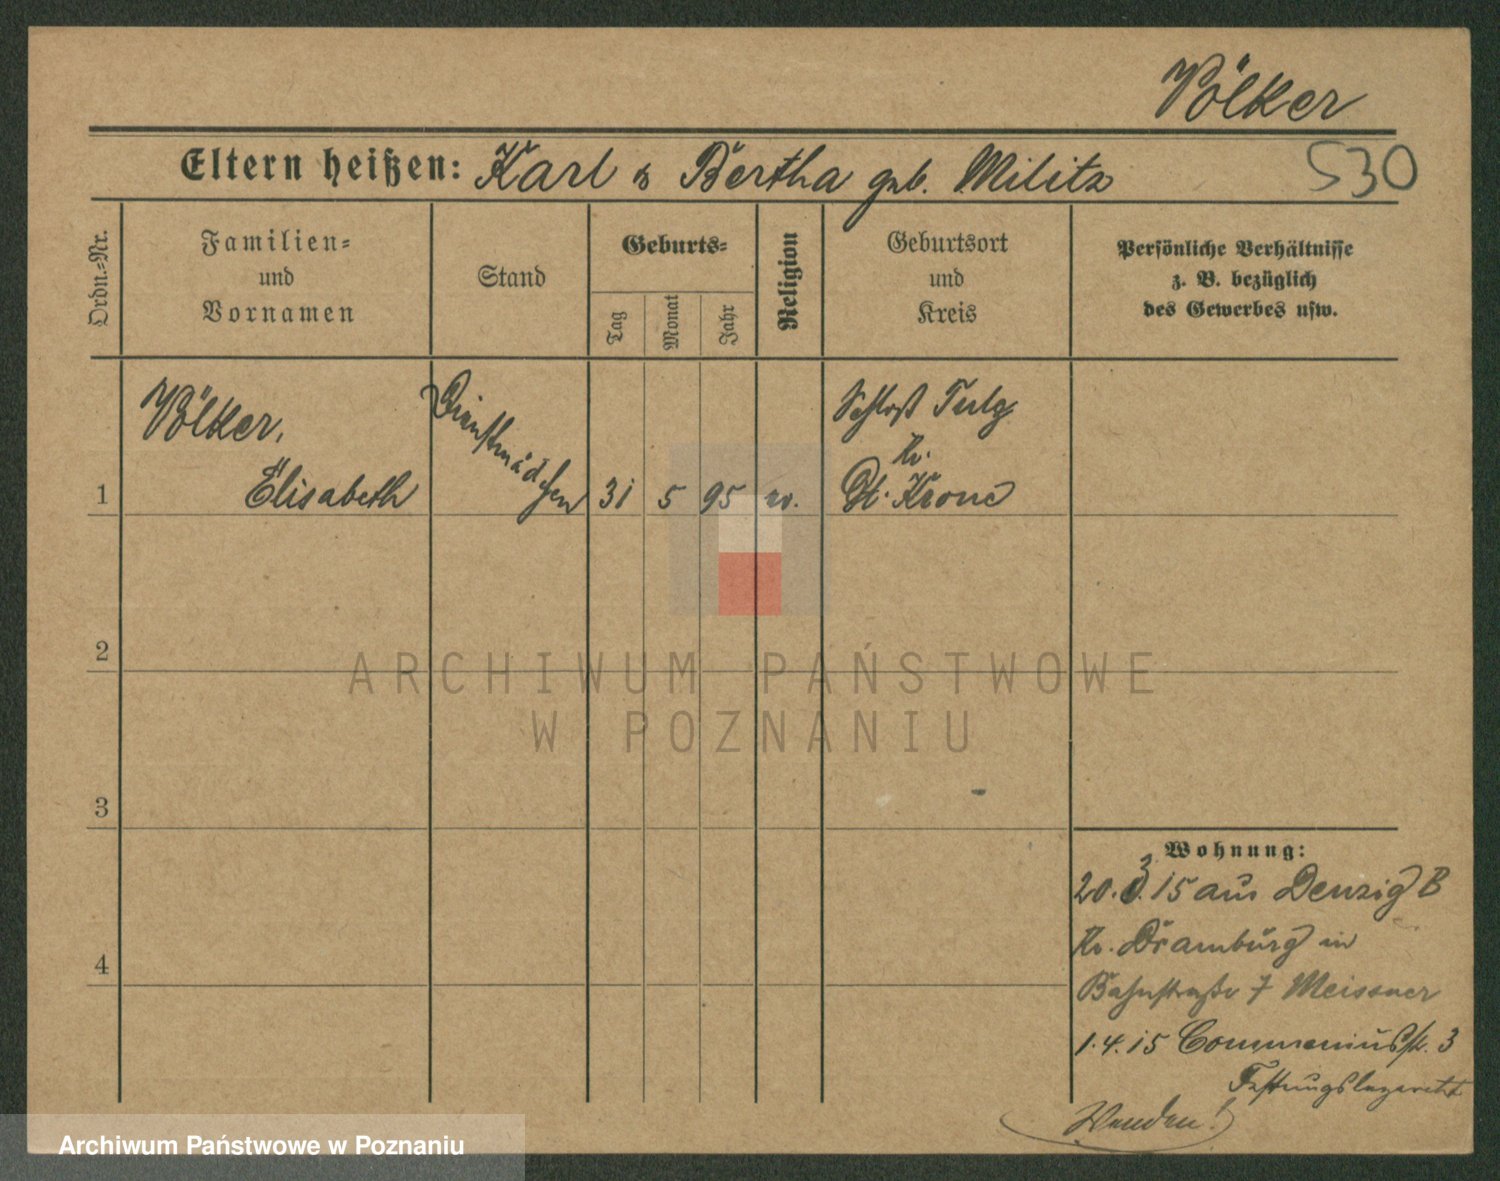 Völker
Eltern heißen: Karl & Bertha geb. Militz
530
Ordn.=Nr.
Familien=
und
Vornamen
Stand
Geburts=
Tag
Monat
Jahr
Religion
Geburtsort
und
Kreis
Persönliche Verhältnisse
z. B. bezüglich
des Gewerbes usw.
1
Völker,
Elisabeth
Dienstmädchen
31
5
95
ev.
Schloß
Kr.
Dt. Krone
2
3
4
Wohnung:
20.3.15 aus Denzig B
Kr. Dramburg in
Bahnstraße 7 Meissner
1.4.15 Commeniusstr. 3
Festungslazarett
Wenden!
ARCHIWUM PAŃSTWOWE
W POZNANIU
Archiwum Państwowe w Poznaniu